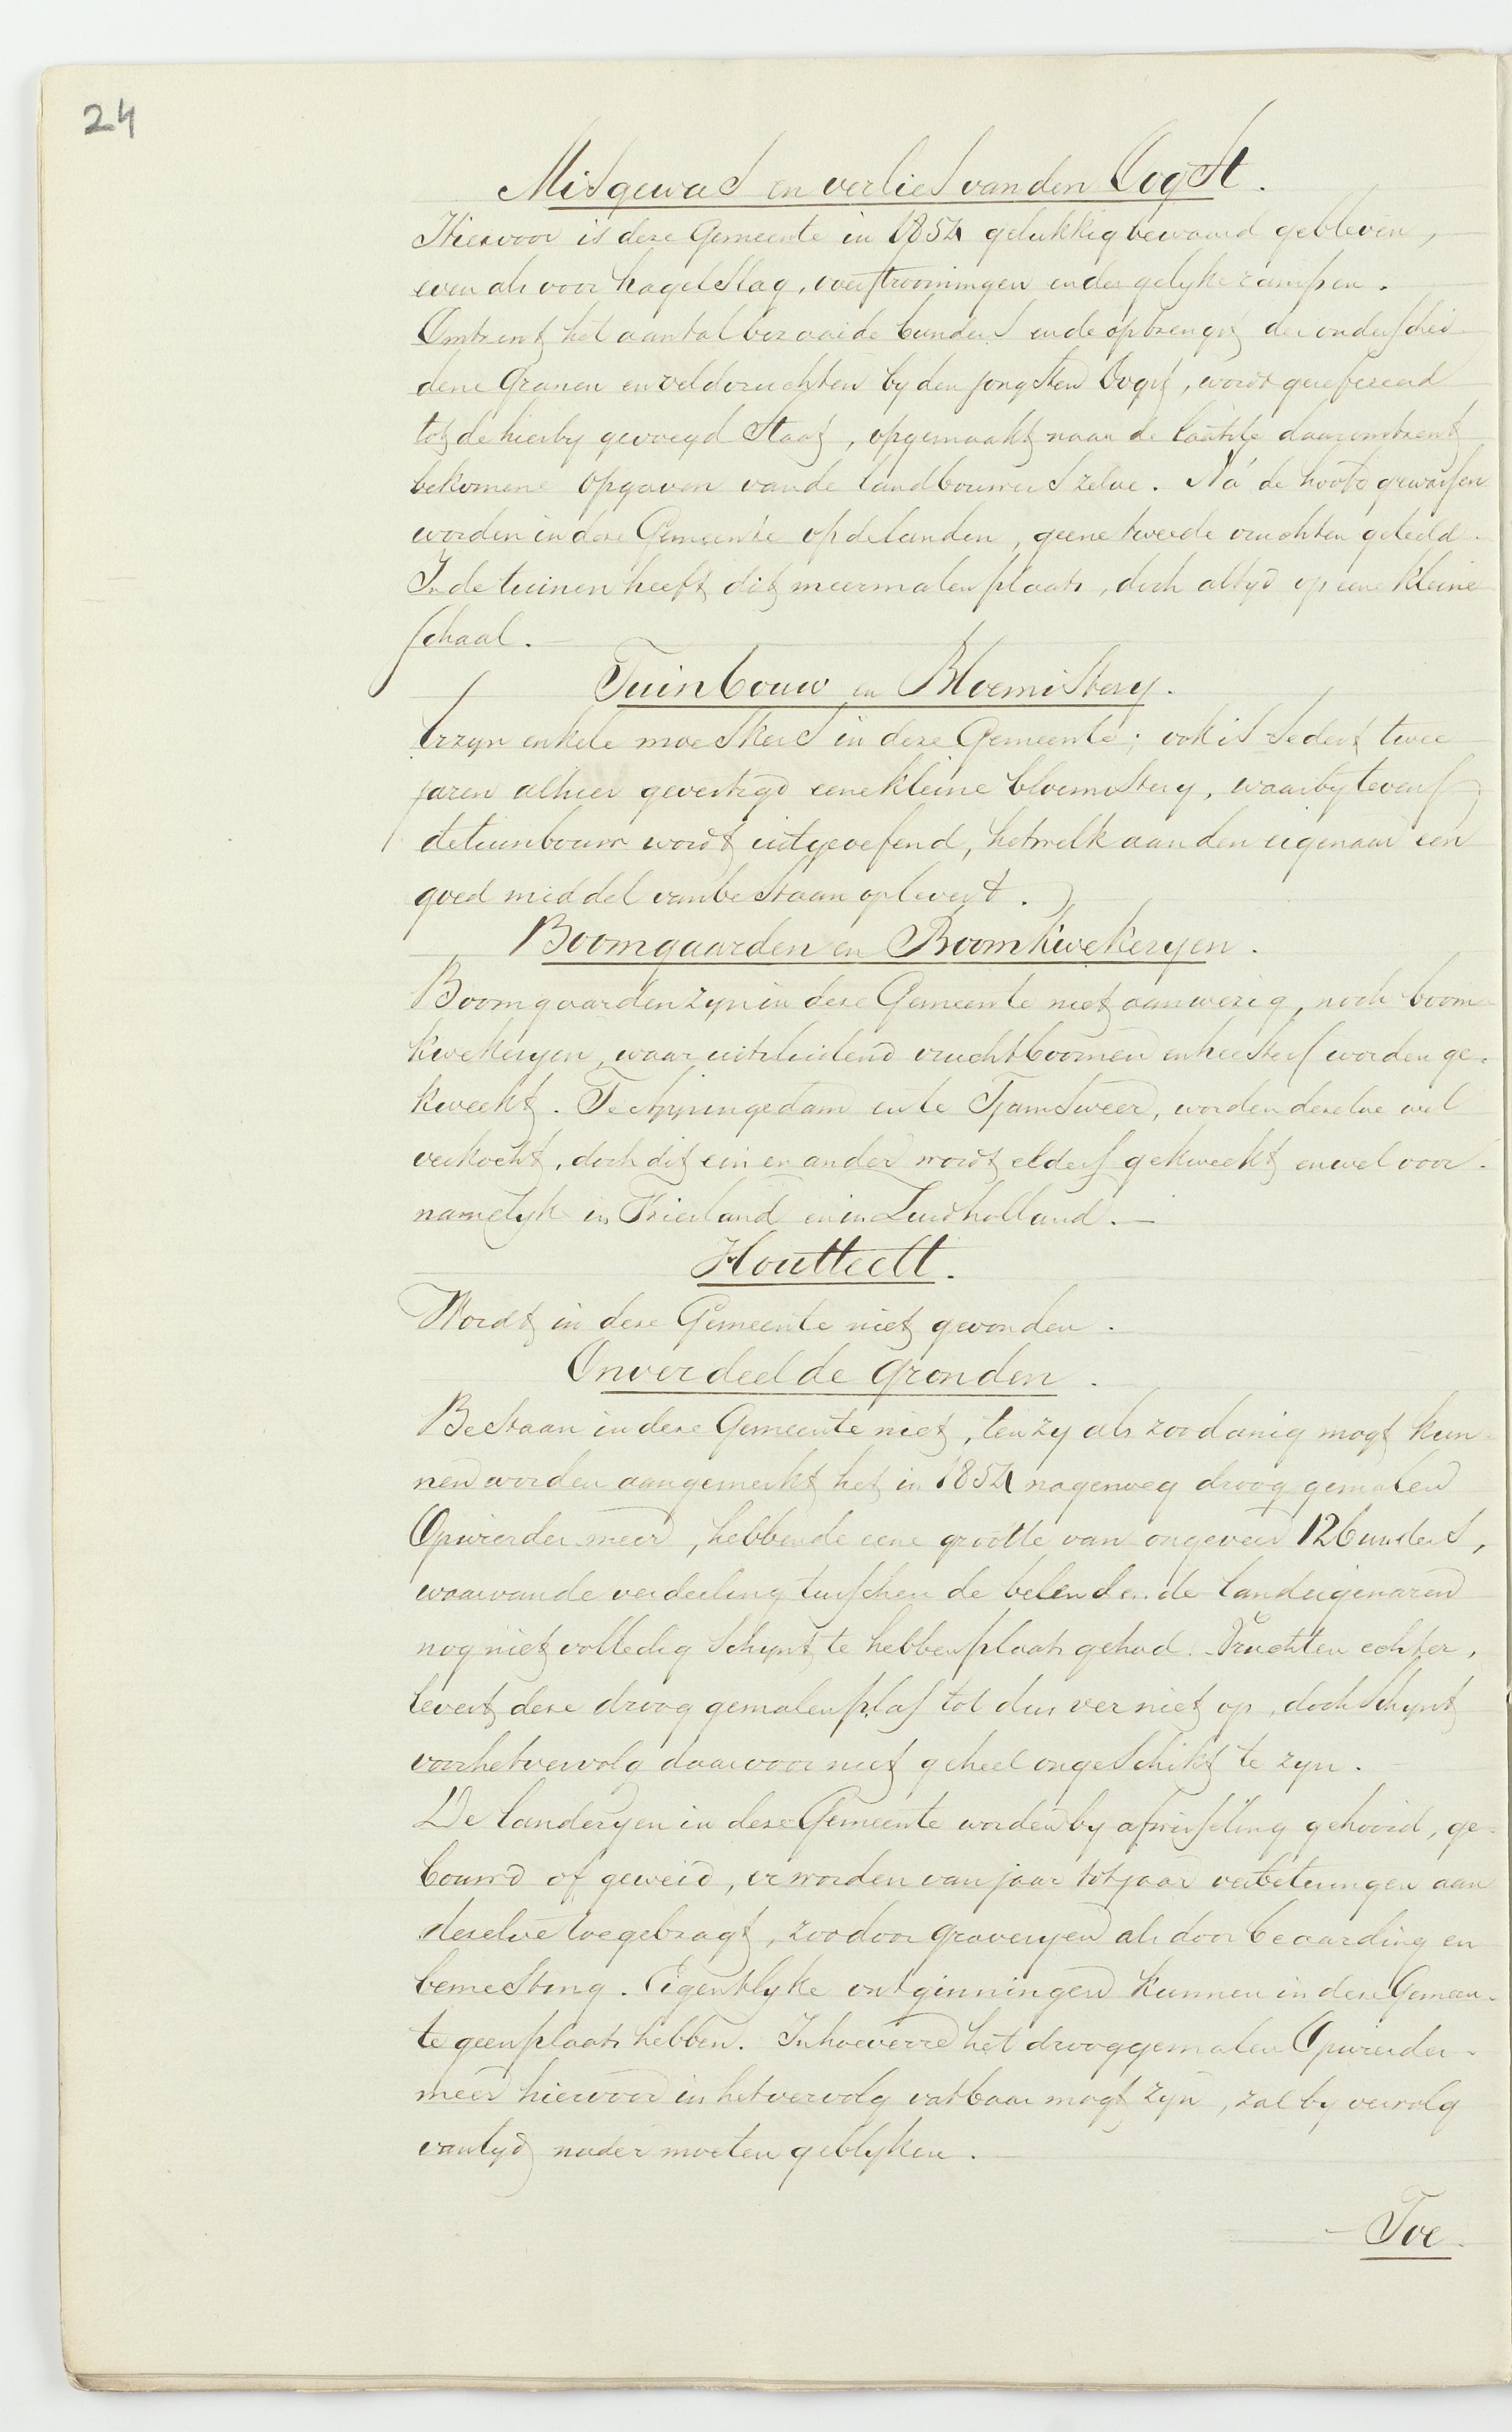 24
Misgewas en verlies van den Oogst.
Hiervoor is deze Gemeente in 1854 gelukkig bewaard gebleven,
even als voor hagelslag, overstroomingen en dergelyke rampen.
Omtrent het aantal bezaaide bunders en de opbrengst der onderschei-
dene Granen en veldvruchten by den jongsten Oogst, wordt gerefereerd
tot de hierby gevoegd Staat, opgemaakt naar de laatste daaromtrent
bekomene opgaven van de landbouwers zelve. Ná de hoofd gewassen
worden in deze Gemeente op de landen, geene tweede vruchten geteeld.
In de tuinen heeft dit meermalen plaats, doch altyd op eene kleine
schaal.
Tuinbouw en Bloemistery.
Er zyn enkele moeskers in deze Gemeente; ook is sedert twee
jaren alhier gevestigd eene kleine bloemistery, waarby tevens
de tuinbouw wordt uitgeoefend, hetwelk aan den eigenaar een
goed middel van bestaan oplevert.
Boomgaarden en Boomkwekeryen.
Boomgaarden zyn in deze Gemeente niet aanwezig, noch boom-
kwekeryen, waar uitsluitend vruchtboomen en heesters worden ge-
kweekt. Te Appingedam en te Tjamsweer, worden dezelve wel
verkocht, doch dit een en ander wordt elders gekweekt en wel voor-
namelyk in Friesland en in Zuidholland.
Houtteelt.
Wordt in deze Gemeente niet gevonden.
Onverdeelde gronden.
Bestaan in deze Gemeente niet, ten zy als zoodanig mogt kun-
nen worden aangemerkt het in 1854 nagenoeg droog gemalen
Opwierder meer, hebbende eene grootte van ongeveer 12 bunders,
waarvan de verdeeling tusschen de belendende landeigenaren
nog niet volledig schynt te hebben plaats gehad. Vruchten echter,
levert deze droog gemalen plas tot dus ver niet op, doch schynt
voor het vervolg daarvoor niet geheel ongeschikt te zyn.
De landeryen in deze Gemeente worden by afwisseling gehooid, ge-
bouwd of geweid, er worden van jaar tot jaar verbeteringen aan
dezelve toegebragt, zoo door graveryen als door beaarding en
bemesting. Eigentlyke ontginningen kunnen in deze Gemeen-
te geen plaats hebben. In hoeverre het drooggemalen Opwierder-
meer hiervoor in het vervolg vatbaar mogt zyn, zal by vervolg
van tyd nader moeten geblyken.
Toe